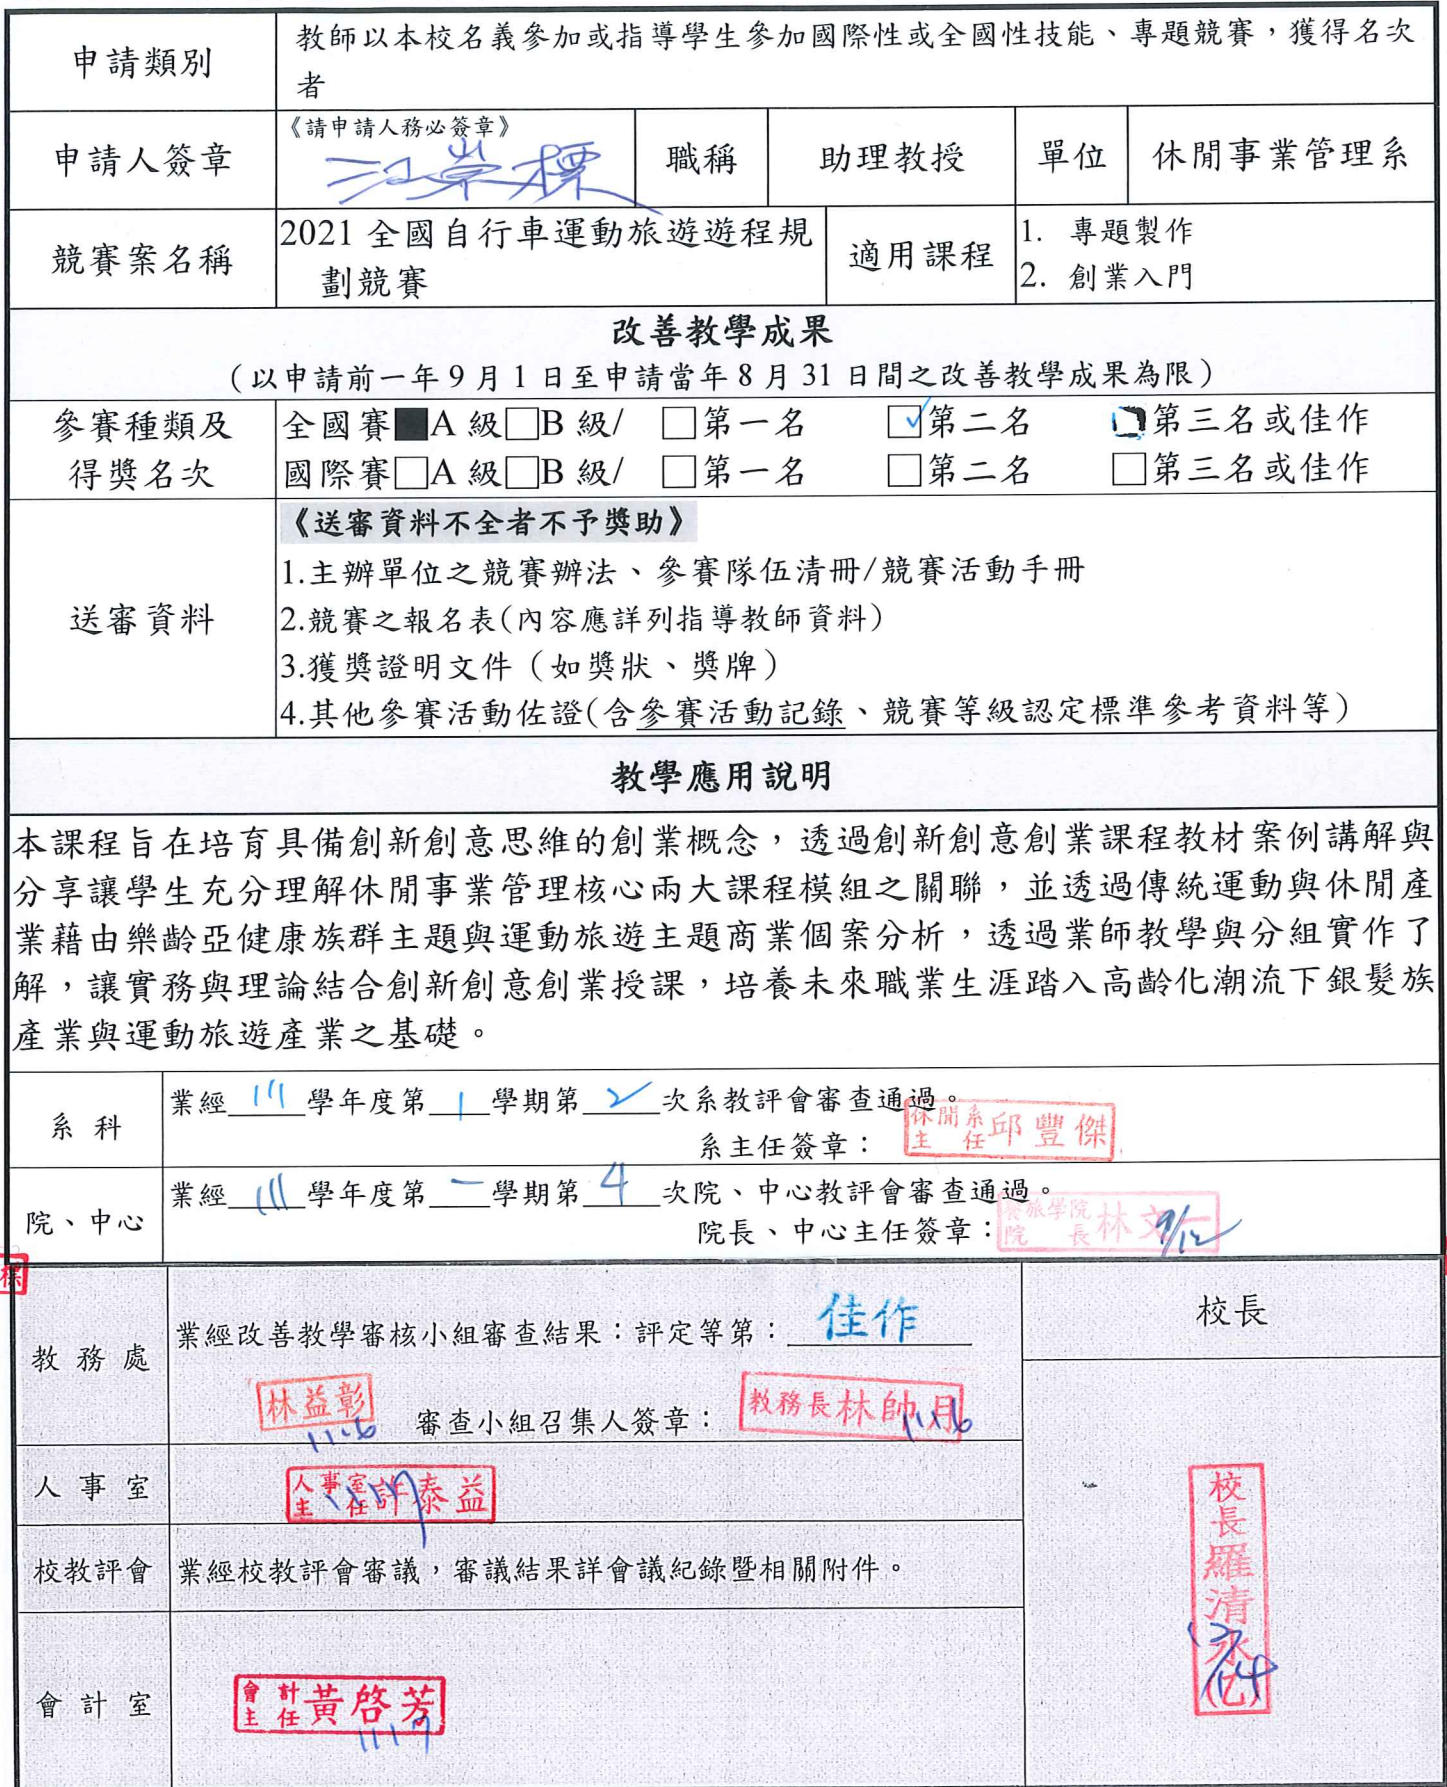 申請類別
教師以本校名義參加或指導學生參加國際性或全國性技能、專題競賽，獲得名次
者
申請人簽章
《請申請人務必簽章》
江崇標
職稱
助理教授
單位
休閒事業管理系
競賽案名稱
2021 全國自行車運動旅遊遊程規
劃競賽
適用課程
1. 專題製作
2. 創業入門
改善教學成果
（以申請前一年 9 月 1 日至申請當年 8 月 31 日間之改善教學成果為限）
參賽種類及
得獎名次
全國賽■A 級□B 級/ □第一名 ☑第二名 □第三名或佳作
國際賽□A 級□B 級/ □第一名 □第二名 □第三名或佳作
送審資料
《送審資料不全者不予獎助》
1.主辦單位之競賽辦法、參賽隊伍清冊/競賽活動手冊
2.競賽之報名表(內容應詳列指導教師資料)
3.獲獎證明文件（如獎狀、獎牌）
4.其他參賽活動佐證(含參賽活動記錄、競賽等級認定標準參考資料等)
教學應用說明
本課程旨在培育具備創新創意思維的創業概念，透過創新創意創業課程教材案例講解與
分享讓學生充分理解休閒事業管理核心兩大課程模組之關聯，並透過傳統運動與休閒產
業藉由樂齡亞健康族群主題與運動旅遊主題商業個案分析，透過業師教學與分組實作了
解，讓實務與理論結合創新創意創業授課，培養未來職業生涯踏入高齡化潮流下銀髮族
產業與運動旅遊產業之基礎。
系科
業經 111 學年度第 1 學期第 2 次系教評會審查通過。
系主任簽章：
休閒系主任 邱豐傑
院、中心
業經 111 學年度第 一 學期第 4 次院、中心教評會審查通過。
院長、中心主任簽章：
餐旅學院院長 林文仁
9/12
教務處
業經改善教學審核小組審查結果：評定等第： 佳作
林益彰
審查小組召集人簽章：
教務長林帥月
校長
人事室
人事室主任 許泰益
校教評會
業經校教評會審議，審議結果詳會議紀錄暨相關附件。
會計室
會計主任 黃啓芳
校長羅清水